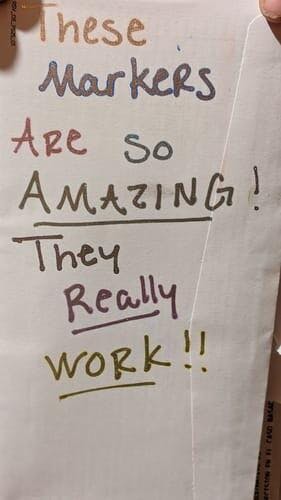 These
Markers
Are so
AMAZING!
They
Really
WORK!!